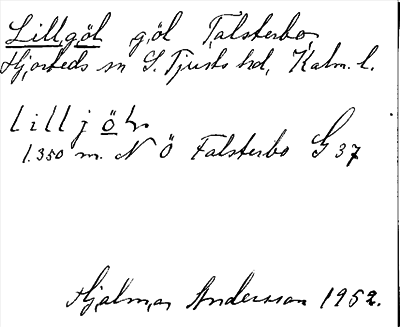 Lillgöl göl Falsterbo,
Hjorteds sn S. Tjusts hd, Kalm. l.
lilljöl.
1.350 m. N Ö Falsterbo G 37
Hjalmar Andersson 1952.